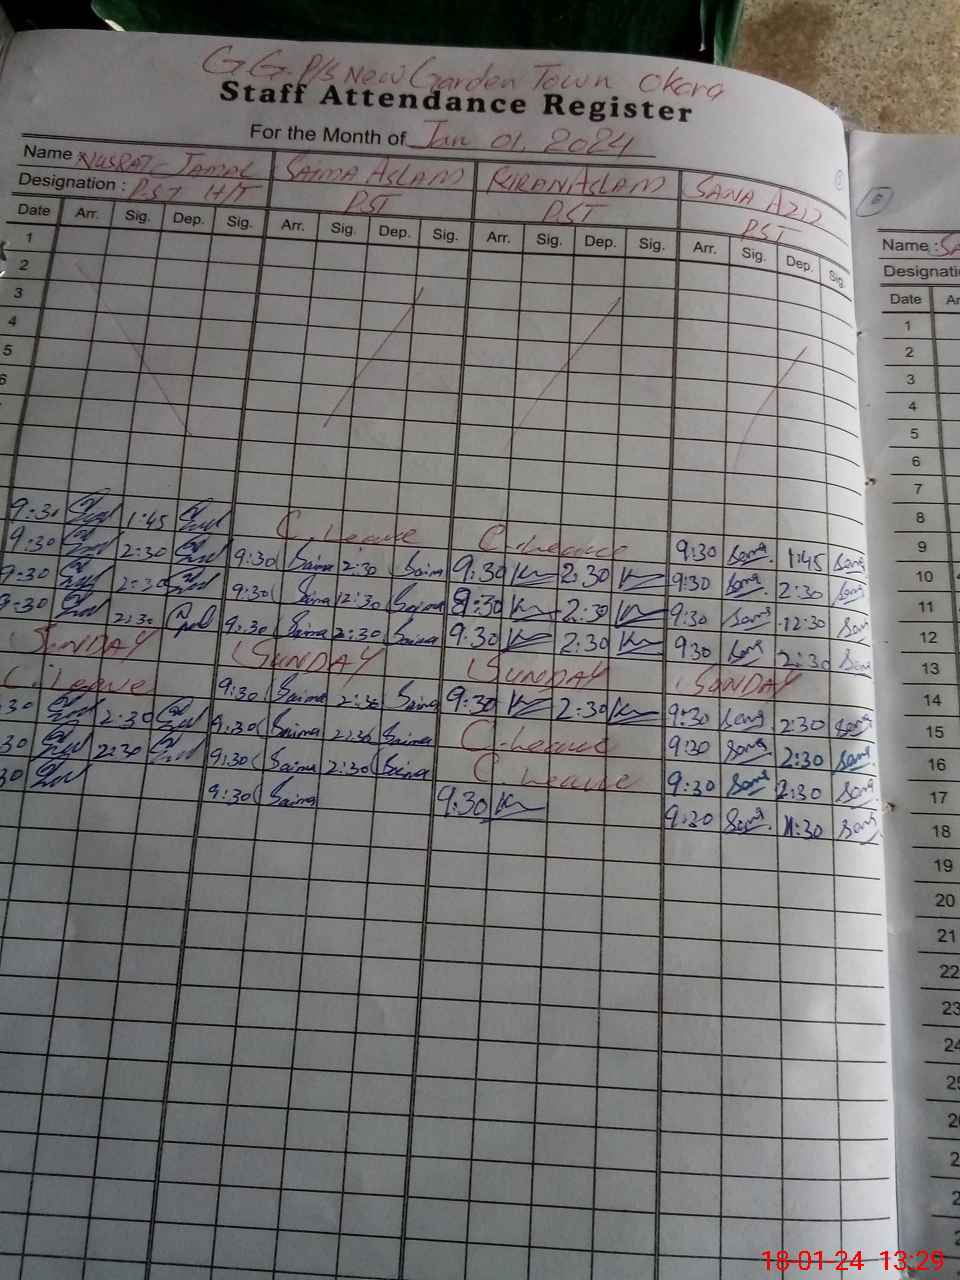 G.G. P/S New Garden Town Okara
Staff Attendance Register
For the Month of Jan 01, 2024
Name NUSRAT JAMAL SAIMA ASLAM KIRAN ASLAM SANA AZIZ
Designation : PST H/T PST PST PST
Date Arr. Sig. Dep. Sig. Arr. Sig. Dep. Sig. Arr. Sig. Dep. Sig. Arr. Sig. Dep. Sig.
1
2
3
4
5
6
9:30 1:45 C. Leave C. Leave 9:30 Sana 1:45 Sana
9:30 2:30 9:30 Saima 2:30 Saima 9:30 2:30 9:30 Sana 2:30 Sana
9:30 2:30 9:30 Saima 12:30 Saima 9:30 2:30 9:30 Sana 12:30 Sana
9:30 2:30 9:30 Saima 2:30 Saima 9:30 2:30 9:30 Sana 2:30 Sana
SUNDAY SUNDAY SUNDAY SUNDAY
C. Leave 9:30 Saima 2:30 Saima 9:30 2:30 9:30 Sana 2:30 Sana
:30 2:30 9:30 Saima 2:30 Saima C. Leave 9:30 Sana 2:30 Sana
30 2:30 9:30 Saima 2:30 Saima C. Leave 9:30 Sana 2:30 Sana
30 9:30 Saima 9:30 9:30 Sana 11:30 Sana
Name :
Designati
Date Ar
1
2
3
4
5
6
7
8
9
10
11
12
13
14
15
16
17
18
19
20
21
22
23
24
25
18-01-24 13:29